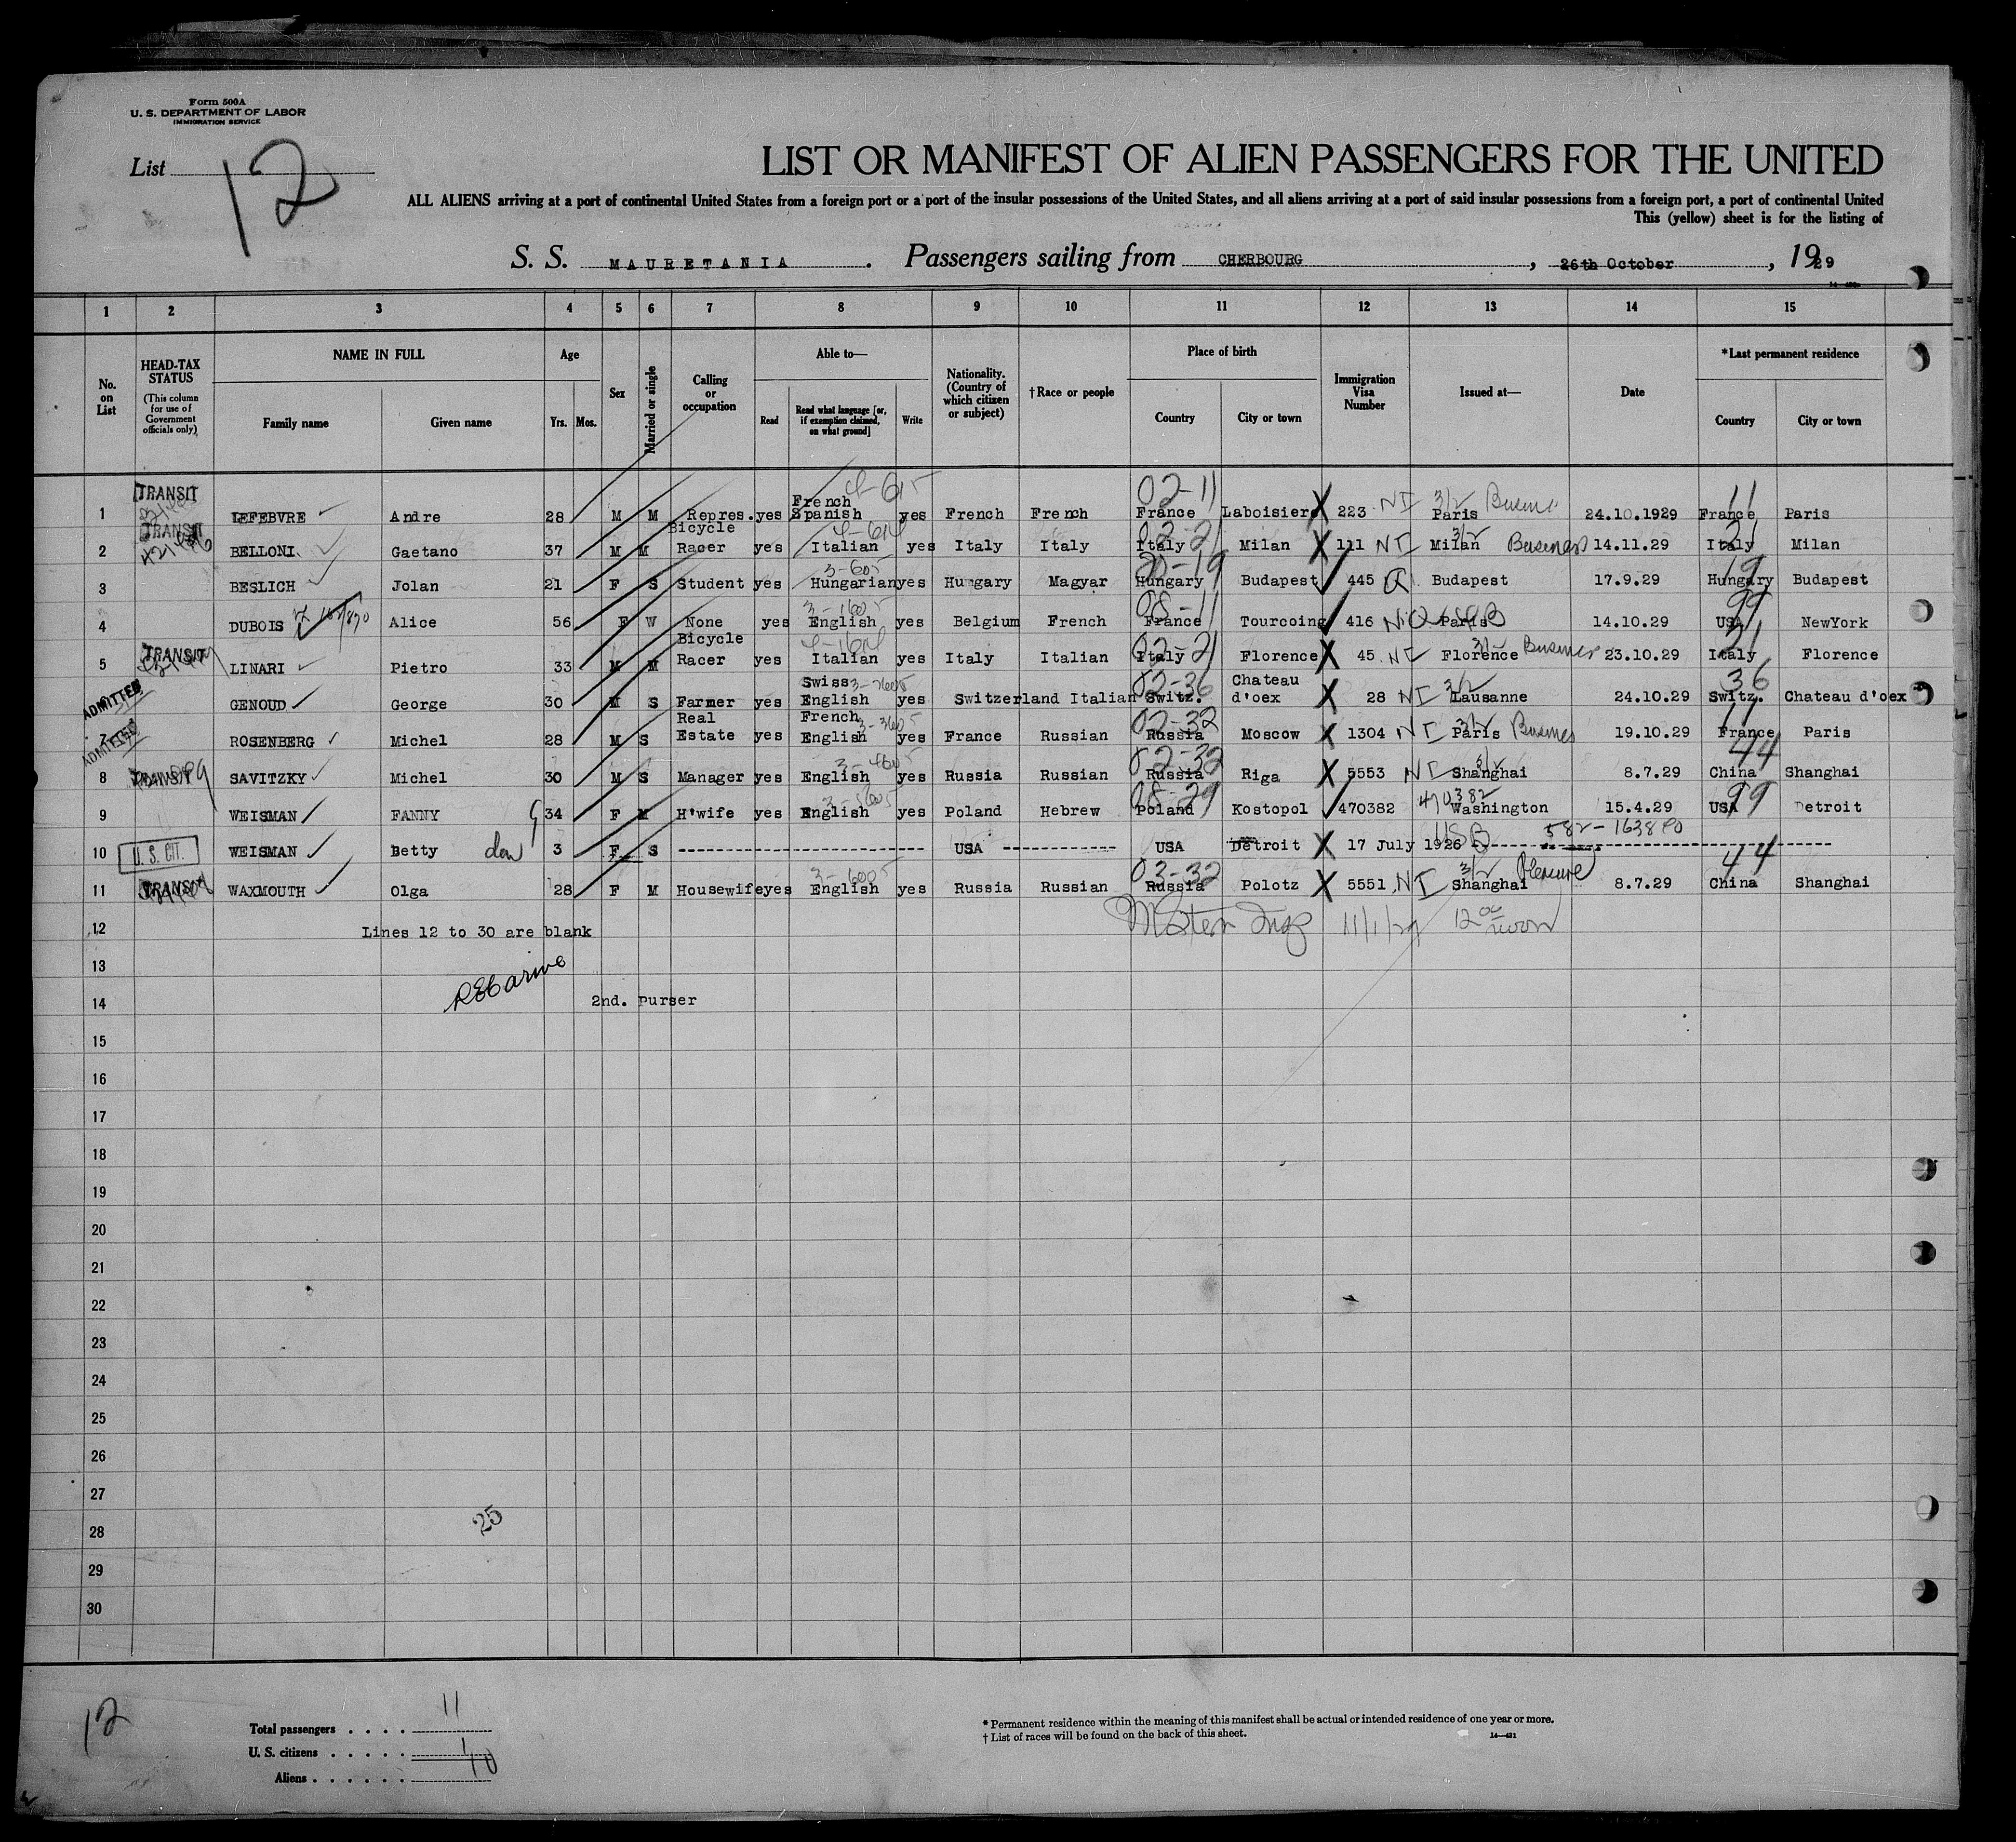 Form 500A
U. S. DEPARTMENT OF LABOR
IMMIGRATION SERVICE
List 12
LIST OR MANIFEST OF ALIEN PASSENGERS FOR THE UNITED
ALL ALIENS arriving at a port of continental United States from a foreign port or a port of the insular possessions of the United States, and all aliens arriving at a port of said insular possessions from a foreign port, a port of continental United
This (yellow) sheet is for the listing of
S. S. MAURETANIA. Passengers sailing from CHERBOURG, 26th October, 1929
1 2 3 4 5 6 7 8 9 10 11 12 13 14 15
No. on List
HEAD-TAX STATUS (This column for use of Government officials only)
NAME IN FULL
Family name Given name
Age
Yrs. Mos.
Sex
Married or single
Calling or occupation
Able to—
Read
Read what language [or, if exemption claimed, on what ground]
Write
Nationality. (Country of which citizen or subject)
†Race or people
Place of birth
Country City or town
Immigration Visa Number
Issued at—
Date
*Last permanent residence
Country City or town
1 TRANSIT LEFEBVRE Andre 28 M M Repres. yes French Spanish 4-615 yes French French France 02-11 Laboisiere X 223 NI 3/2 Paris Business 24.10.1929 France 11 Paris
2 TRANSIT BELLONI Gaetano 37 M M Bicycle Racer yes Italian 4-614 yes Italy Italy Italy 02-21 Milan X 111 NI 3/2 Milan Business 14.11.29 Italy 21 Milan
3 BESLICH Jolan 21 F S Student yes Hungarian 3-605 yes Hungary Magyar Hungary Budapest 445 Q Budapest 17.9.29 Hungary 19 Budapest
4 DUBOIS Alice 56 F W None yes English 3-1605 yes Belgium French France 08-11 Tourcoing 416 NQ Paris 14.10.29 USA 99 NewYork
5 TRANSIT LINARI Pietro 33 M M Bicycle Racer yes Italian 4-1614 yes Italy Italian Italy 02-21 Florence X 45 NI 3/2 Florence Business 23.10.29 Italy 21 Florence
ADMITTED GENOUD George 30 M S Farmer yes Swiss English 3-2605 yes Switzerland Italian Switz. 02-36 Chateau d'oex X 28 NI 3/2 Lausanne 24.10.29 Switz. 36 Chateau d'oex
7 ADMITTED ROSENBERG Michel 28 M S Real Estate yes French English 3-3605 yes France Russian Russia 02-32 Moscow X 1304 NI 3/2 Paris Business 19.10.29 France 11 Paris
8 TRANSIT SAVITZKY Michel 30 M S Manager yes English 3-4605 yes Russia Russian Russia 02-32 Riga X 5553 NI 3/2 Shanghai 8.7.29 China 44 Shanghai
9 WEISMAN FANNY 34 F M H'wife yes English 3-5605 yes Poland Hebrew Poland 08-29 Kostopol 470382 470382 Washington 15.4.29 USA 99 Detroit
10 U. S. CIT. WEISMAN Betty 3 F S USA USA Detroit X 17 July 1926 USB 582-163890
11 TRANSIT WAXMOUTH Olga 28 F M Housewife yes English 3-6005 yes Russia Russian Russia 03-32 Polotz X 5551 NI 3/2 Shanghai Pleasure 8.7.29 China 44 Shanghai
12 Lines 12 to 30 are blank 11/1/29 12 00 noon
13
14 2nd. Purser
15
16
17
18
19
20
21
22
23
24
25
26
27
28 25
29
30
12
Total passengers . . . . 11
U. S. citizens . . . . . 1
Aliens . . . . . . 10
* Permanent residence within the meaning of this manifest shall be actual or intended residence of one year or more.
† List of races will be found on the back of this sheet.
14—421